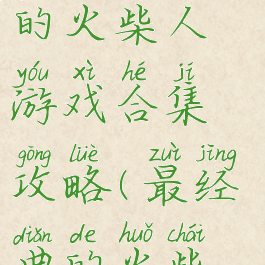 的火柴人
yóu xì hé jí
游戏合集
gōng lüè zuì jīng
攻略(最经
diǎn de huǒ chái
典的火柴